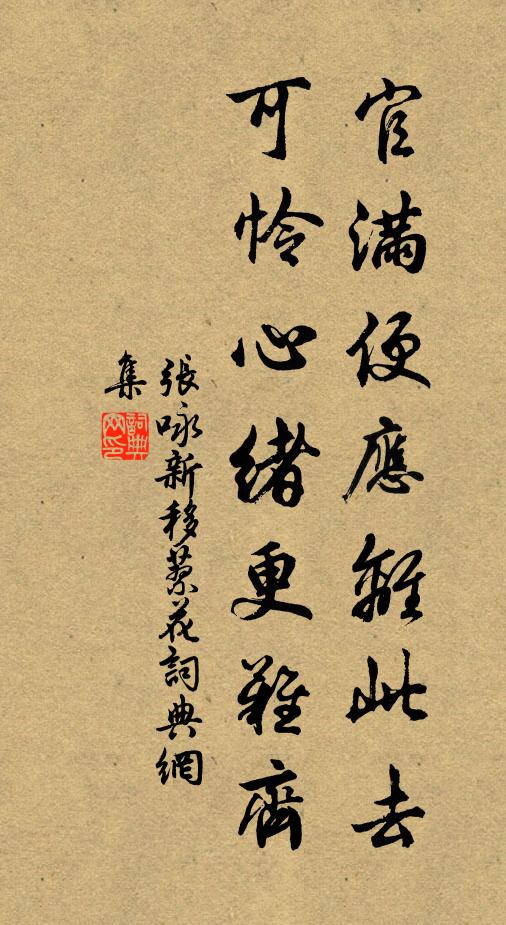 官滿便應離此去
可憐心緒更難齊
張咏新移蔂花詞典網
集
詞典網印